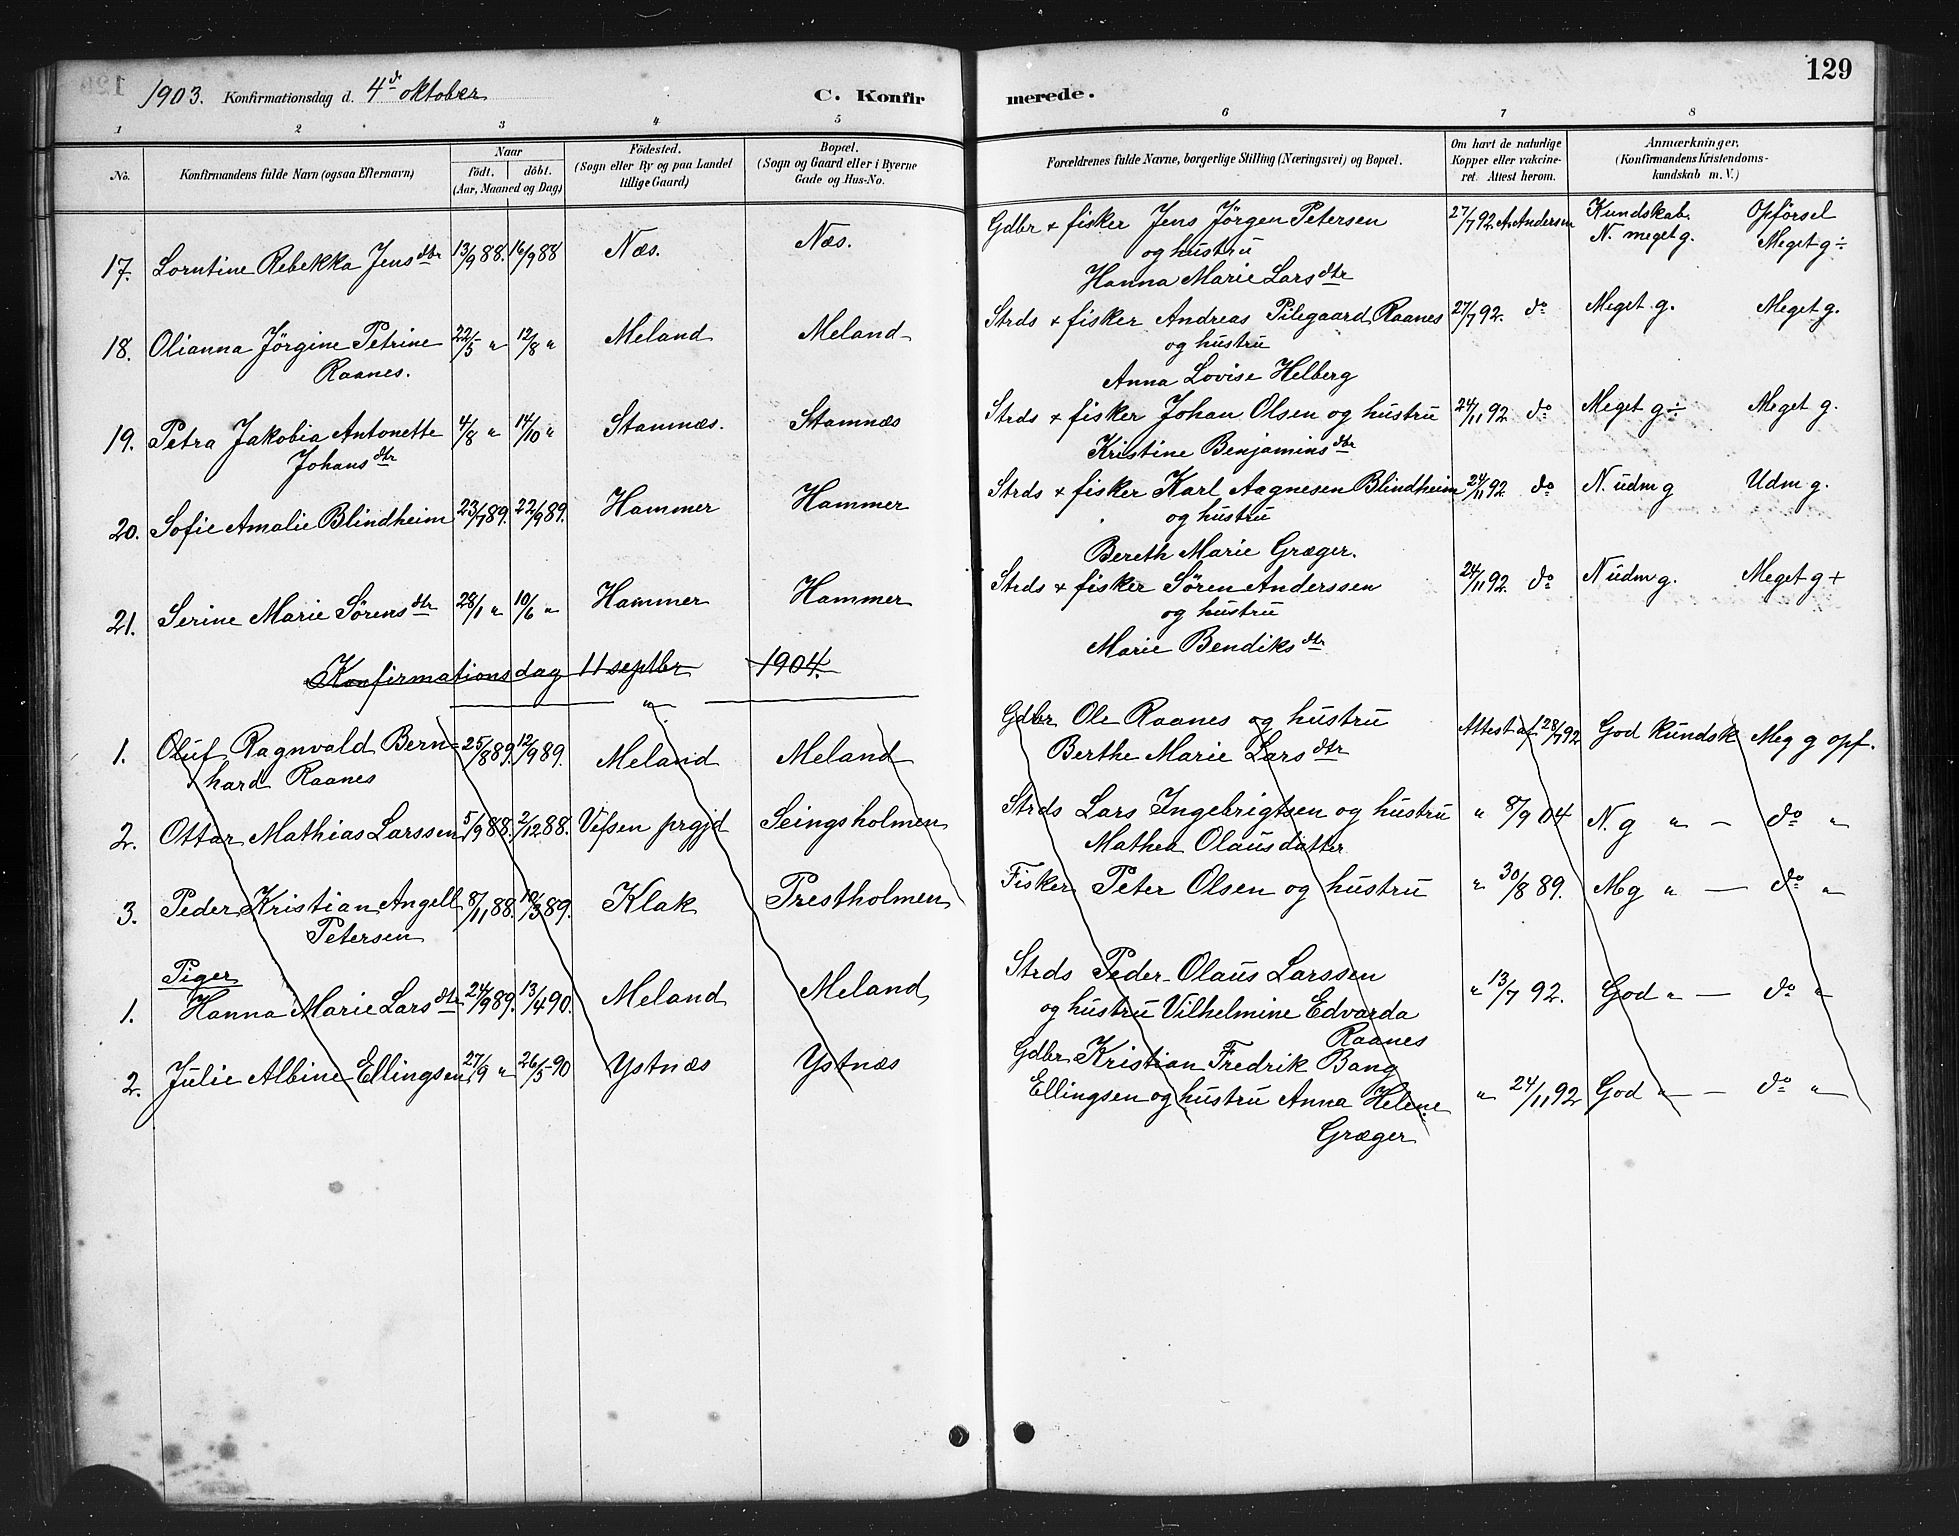 1903. Konfirmationsdag d. 4de oktober C. Konfirmerede. 129
1 2 3 4 5 6 7 8
No. Konfirmandens fulde Navn (ogsaa Efternavn) Naar födt. döbt. (Aar, Maaned og Dag) Födested. (Sogn eller By og paa Landet tillige Gaard) Bopæl. (Sogn og Gaard eller i Byerne Gade og Hus-No. Forældrenes fulde Navne, borgerlige Stilling (Næringsvei) og Bopæl. Om havt de naturlige Kopper eller vakcineret. Attest herom. Anmærkninger. (Konfirmandens Kristendomskundskab m. V.)
Kundskab. Opförsel
17. Lorntine Rebekka Jensdtr 13/9 88. 16/9 88 Næs. Næs. Gdbr + fisker Jens Jörgen Petersen 27/7 92 A. Andersen N. meget g. Meget g ÷
og hustru
Hanna Marie Larsdtr
18. Olianna Jörgine Petrine 22/5 " 12/8 " Meland Meland Strds + fisker Andreas Pilegaard Raanes 27/7 92. do Meget g. Meget g.
Raanes. og hustru
Anna Lovise Helberg
19. Petra Jakobia Antonette 4/8 " 14/10 " Stamnæs. Stamnæs Strds + fisker Johan Olsen og hustru 24/11 92. do Meget g ÷ Meget g.
Johansdtr Kristine Benjaminsdtr
20. Sofie Amalie Blindheim 23/7 89. 22/9 89. Hammer Hammer Strds + fisker Karl Aagnesen Blindheim 24/11 92 do N. udm g Udm g.
og hustru
Bereth Marie Græger.
21. Serine Marie Sörensdtr 28/1 " 10/6 " Hammer Hammer Strds + fisker Sören Anderssen 24/11 92. do N udm g. Meget g +
og hustru
Marie Bendiksdtr
Konfirmationsdag 11 septbr 1904.
"
1. Oluf Ragnvald Bern- 25/8 89. 12/9 89. Meland Meland Gdbr Ole Raanes og hustru Attest af 28/7 92 God kundsk Meg g opf.
hard Raanes Berthe Marie Larsdtr
2. Ottar Mathias Larssen 5/9 88. 2/12 88. Vefsen prgjd Seingsholmen Strds Lars Ingebrigtsen og hustru " 8/9 04 N. g " — do "
Mathea Olausdatter
3. Peder Kristian Angell 8/11 88. 10/3 89. Klak Prestholmen Fisker Peter Olsen og hustru " 30/8 89. Mg " — do "
Petersen
Piger
1. Hanna Marie Larsdtr 24/9 89. 13/4 90. Meland Meland Strds Peder Olaus Larssen " 13/7 92. God " — do "
og hustru Vilhelmine Edvarda
Raanes
2. Julie Albine Ellingsen 27/9 " 26/5 90 Ystnæs Ystnæs Gdbr Kristian Fredrik Bang
Ellingsen og hustru Anna Helene " 24/11 92 God " — do "
Græger